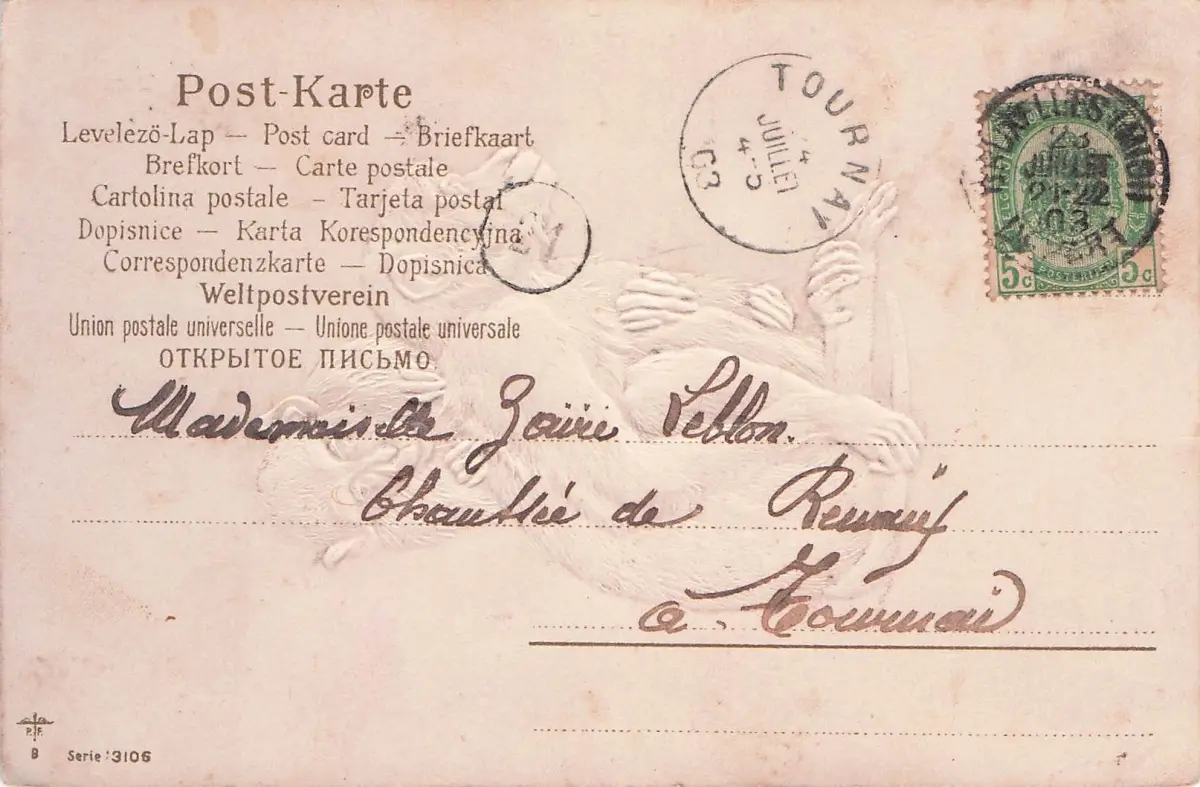 Post-Karte
Levelezö-Lap — Post card — Briefkaart
Brefkort — Carte postale
Cartolina postale – Tarjeta postal
Dopisnice — Karta Korespondencyjna
Correspondenzkarte — Dopisnica
Weltpostverein
Union postale universelle — Unione postale universale
ОТКРЫТОЕ ПИСЬМО
21
TOURNAY
JUILLET
4-5
03
23
JUILLET
21-22
03
5c POSTERIJEN 5c
Mademoiselle Zaïre Leblon.
Chaussée de Renaix
a. Tournai
P.F.
B Serie 3106